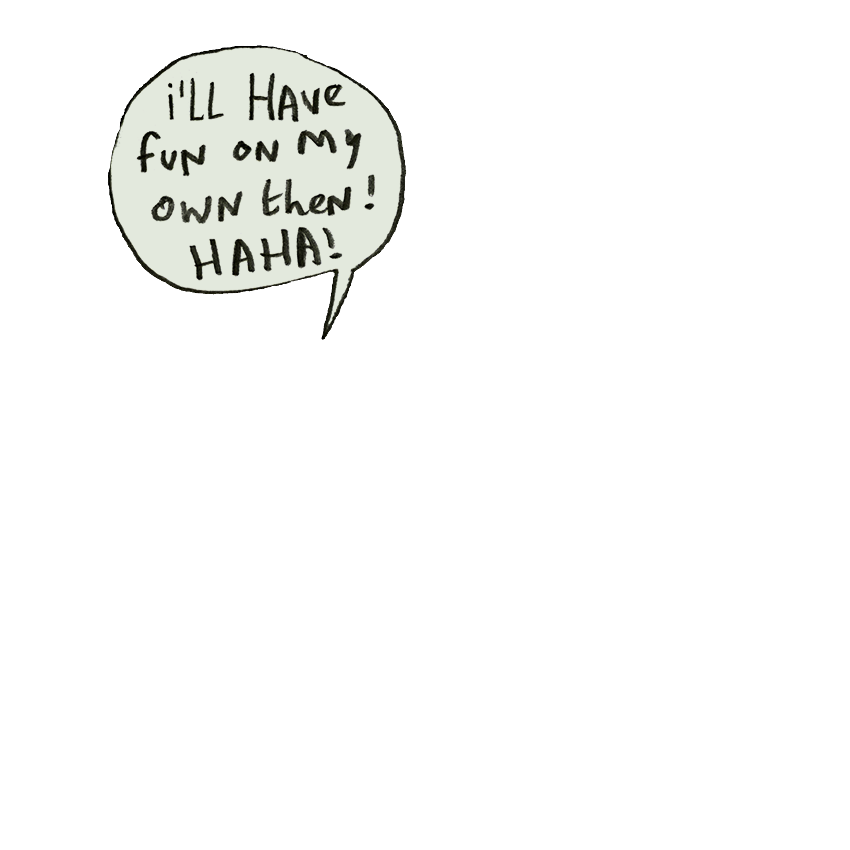 i'LL HAve
fuN oN my
owN theN!
HAHA!